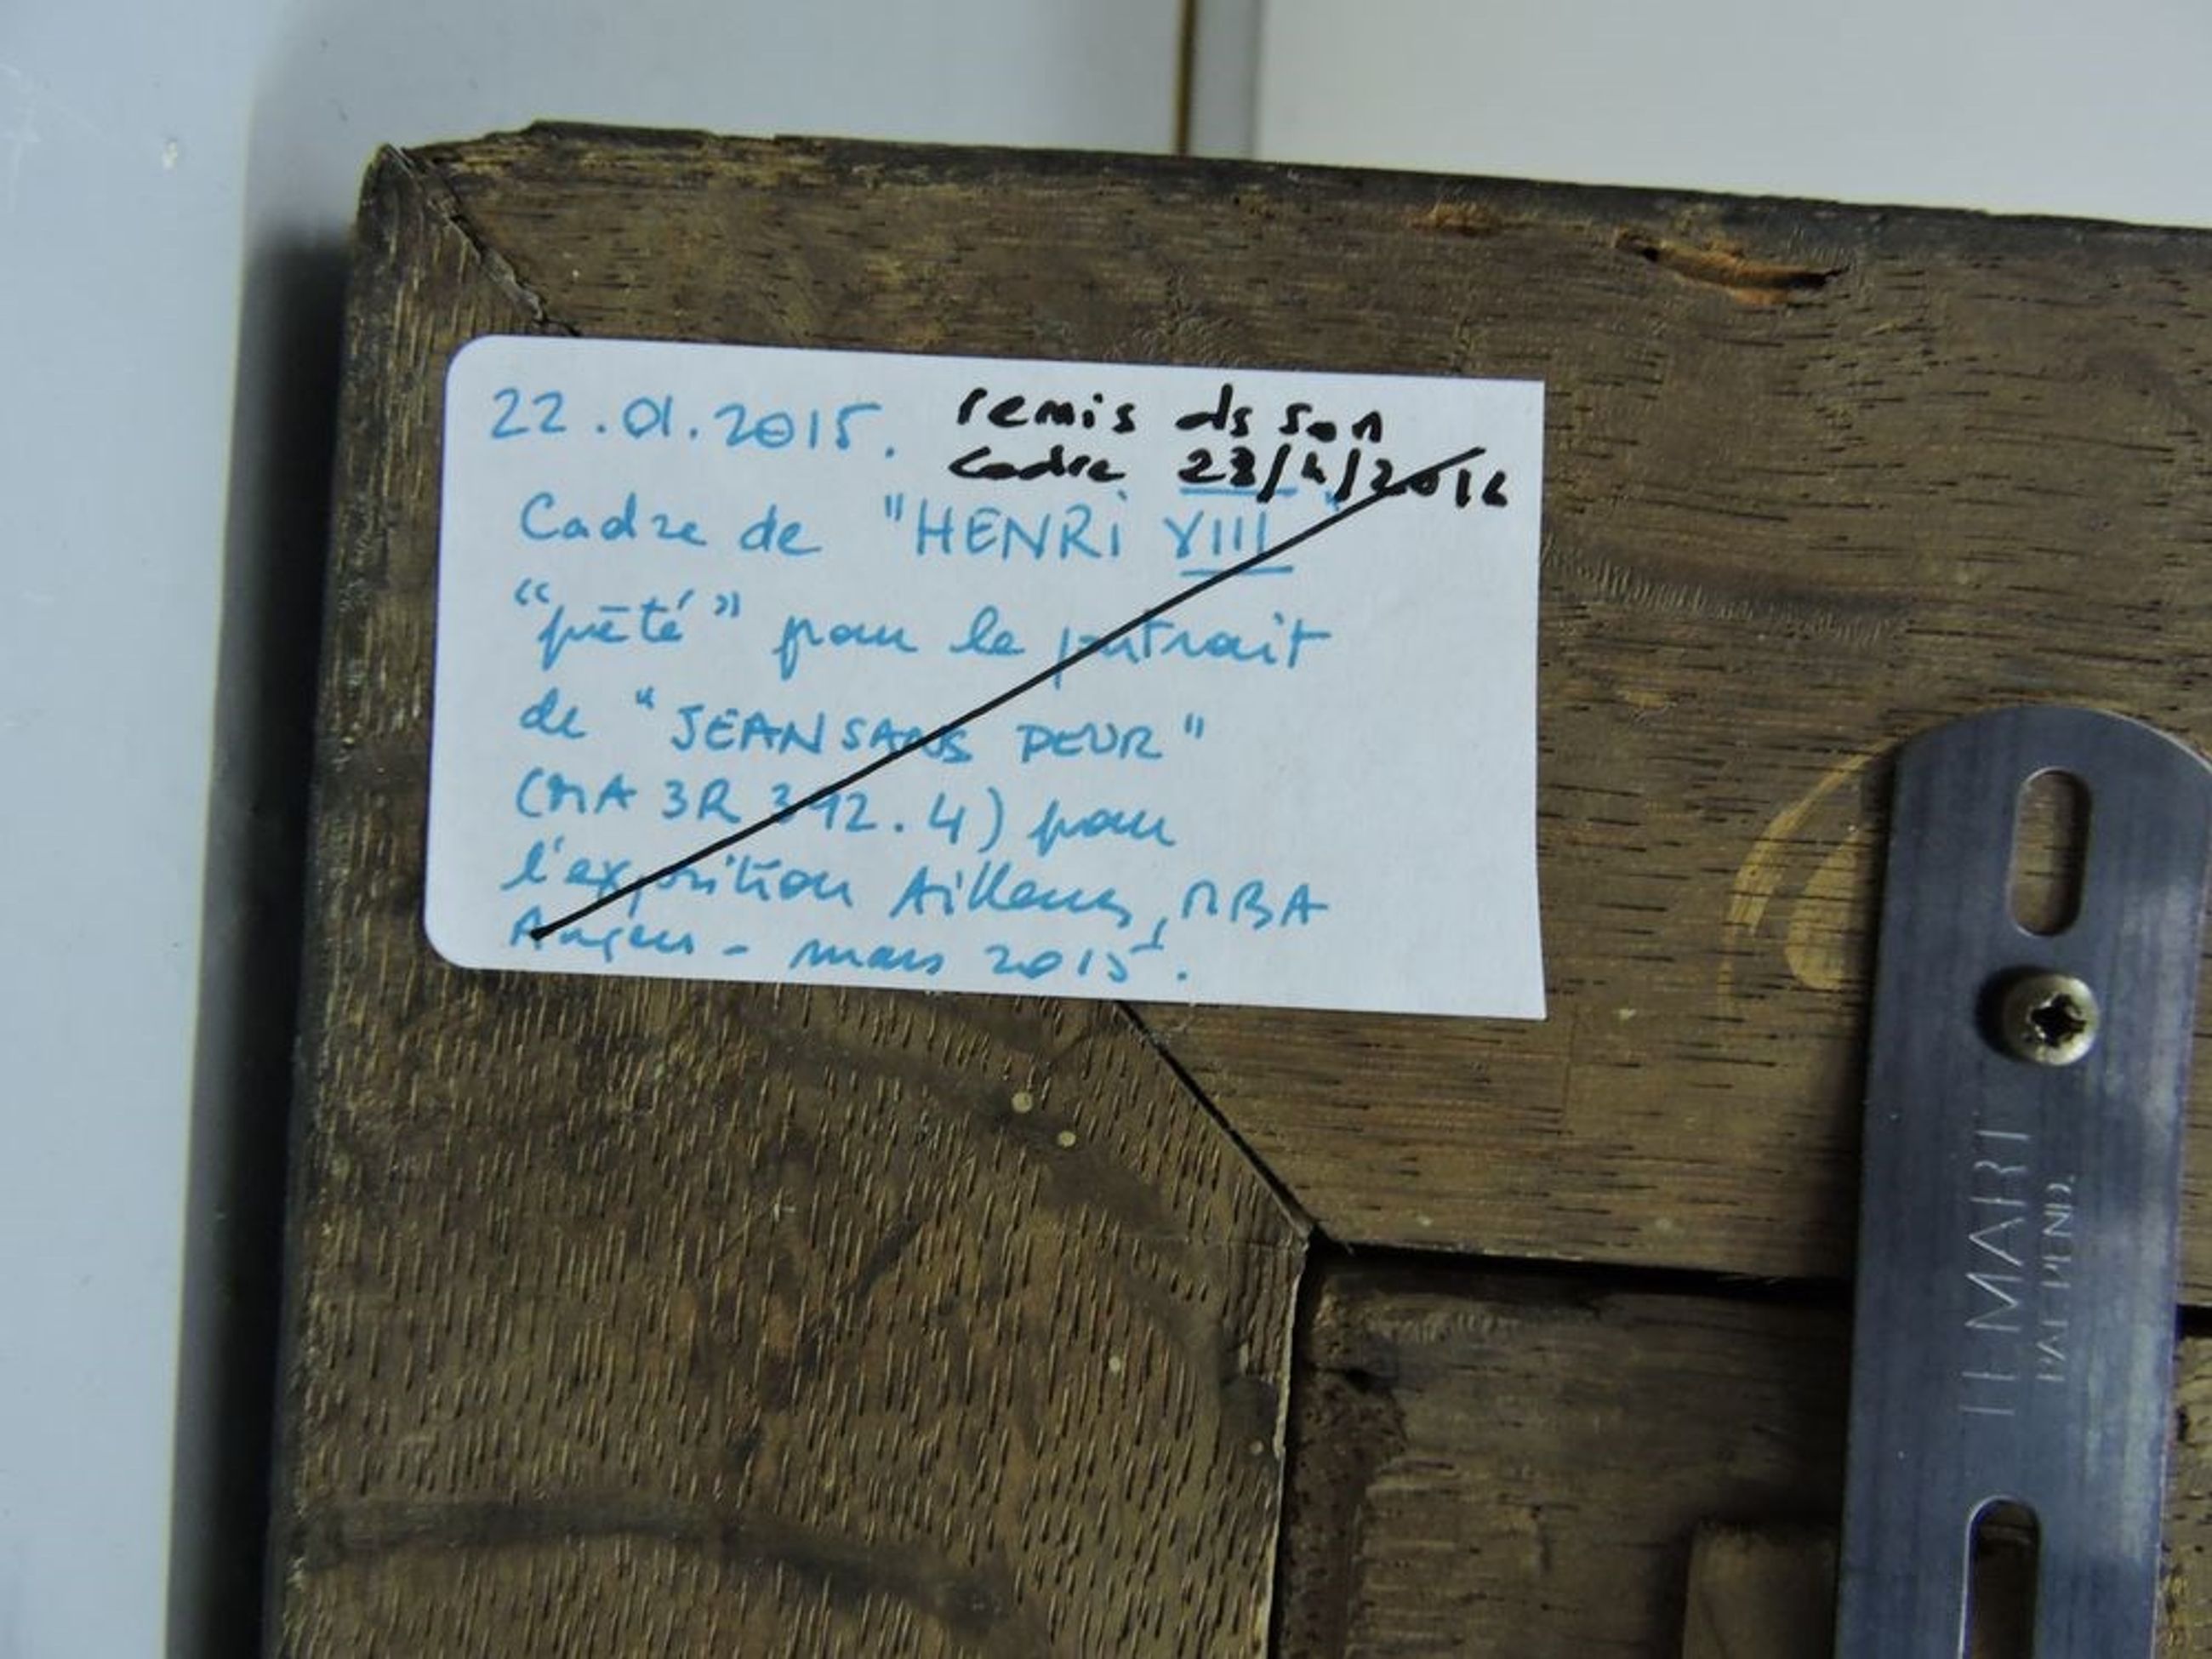 22.01.2015.
remis ds son
cadre 28/4/2016
Cadre de "HENRI VIII"
"prêté" pour le portrait
de "JEAN SANS PEUR"
(MA 3R 392.4) pour
l'exposition Ailleurs, MBA
Angers - mars 2015.
TEMART
PAT. PEND.